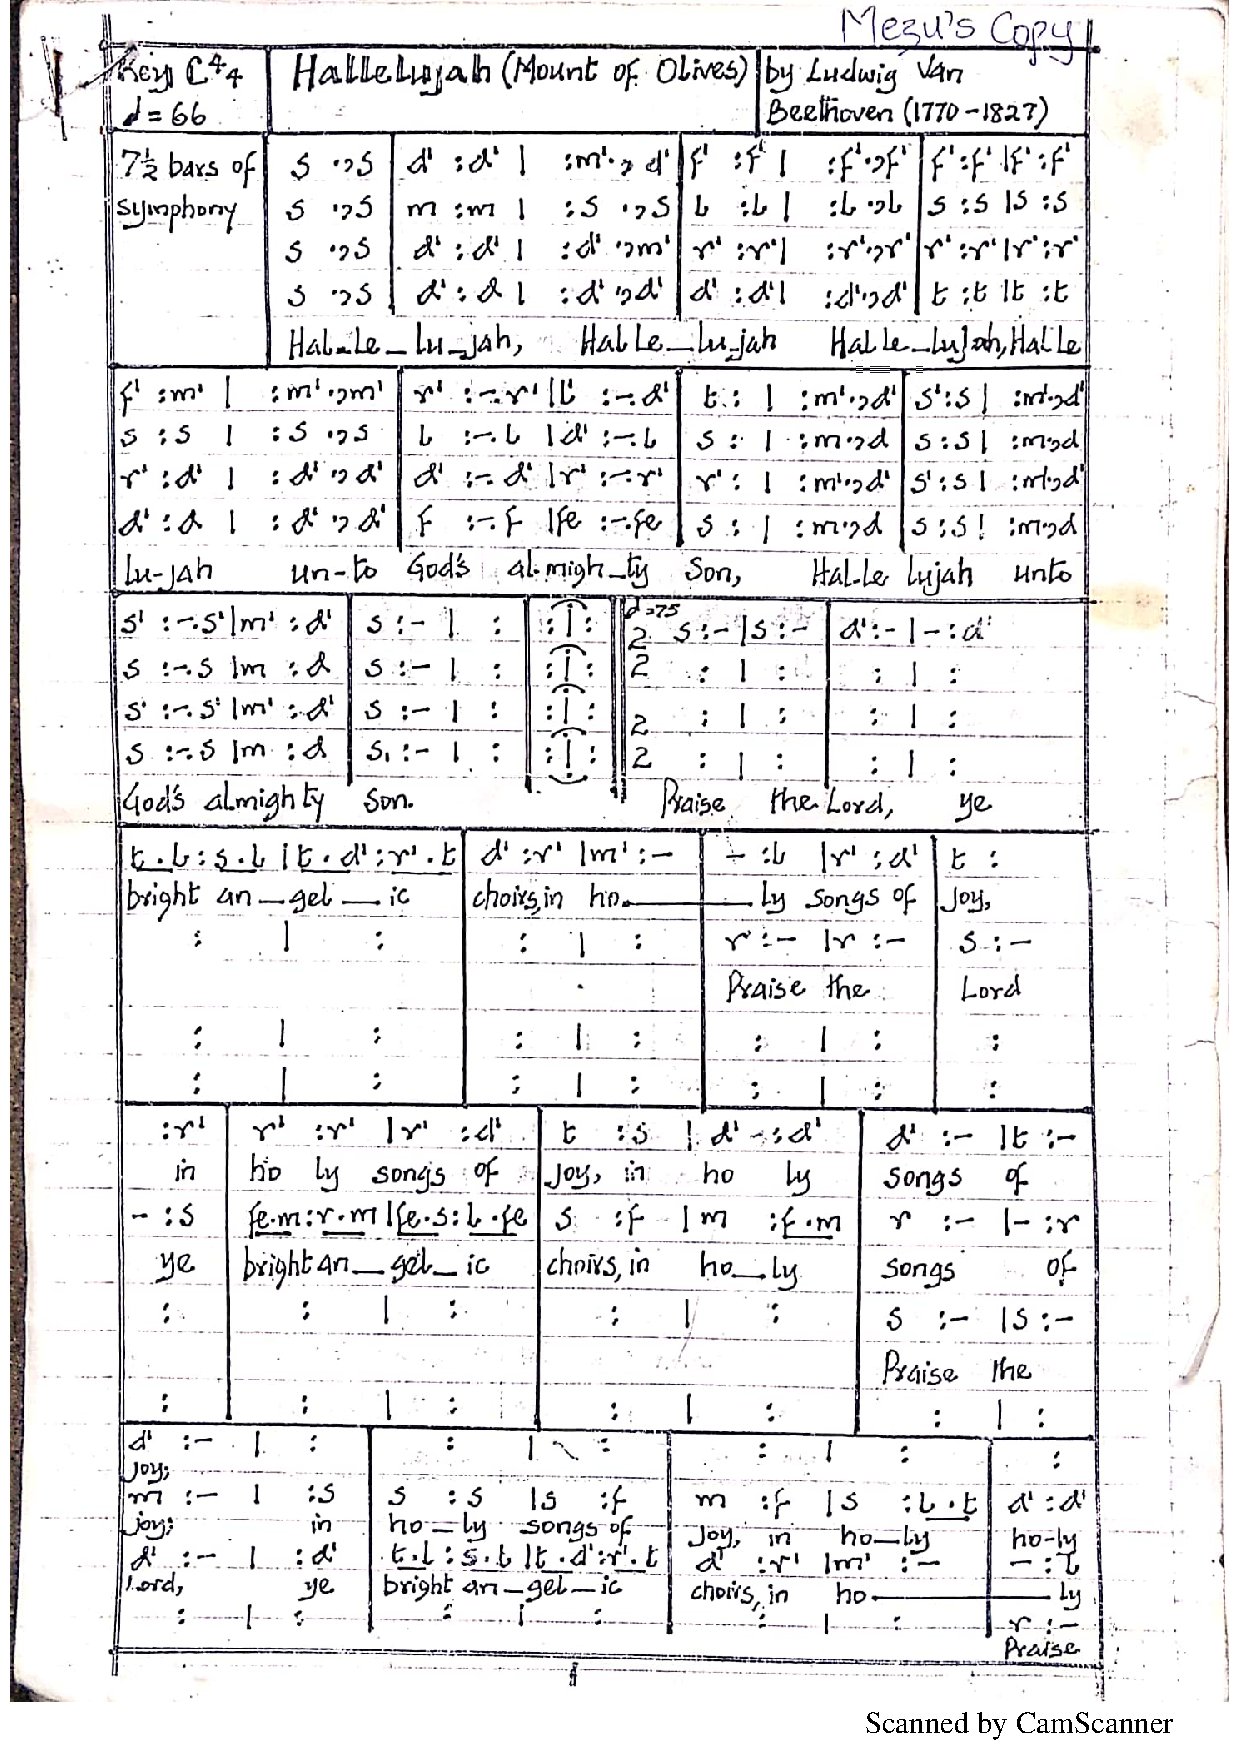 Mezu's Copy
Key C 4/4 Hallelujah (Mount of Olives) by Ludwig Van
♩=66 Beethoven (1770-1827)
7½ bars of s .,s d' :d' | :m'.,d' f' :f' | :f'.,f' f' :f' |f' :f'
symphony s .,s m :m | :s .,s l :l | :l.,l s :s |s :s
s .,s d' :d' | :d'.,m' r' :r' | :r'.,r' r' :r' |r' :r'
s .,s d' :d | :d'.,d' d' :d' | :d'.,d' t :t |t :t
Hal-le-lu-jah, Halle-lu-jah Halle-lujah, Halle
f' :m' | :m'.,m' r' :-.r' |l' :-.d' t : | :m'.,d' s' :s | :m'.,d'
s :s | :s .,s l :-.l |d' :-.l s : | :m.,d s :s | :m.,d
r' :d' | :d'.,d' d' :-.d' |r' :-.r' r' : | :m'.,d' s' :s | :m'.,d'
d' :d | :d'.,d' f :-.f |fe :-.fe s : | :m.,d s :s | :m.,d
lu-jah un-to God's al-migh-ty son, Hal-le lujah unto
s' :-.s' |m' :d' s :- | : : | : ♩=75 2 s :- |s :- d' :- |- :d'
s :-.s |m :d s :- | : : | : 2 : | : : | :
s' :-.s' |m' :d' s :- | : : | : 2 : | : : | :
s :-.s |m :d s, :- | : : | : 2 : | : : | :
God's almighty son. Praise the Lord, ye
t.l :s.l |t.d' :r'.t d' :r' |m' :- - :l |r' :d' t :
bright an-gel-ic choirs, in ho-ly songs of joy,
: | : : | : r :- |r :- s :-
Praise the Lord
: | : : | : : | : :
: | : : | : : | : :
:r' r' :r' |r' :d' t :s | d' - :d' d' :- |t :-
in ho ly songs of joy, in ho ly songs of
- :s fe.m :r.m |fe.s :l.fe s :f |m :f.m r :- |- :r
ye bright an-gel-ic choirs, in ho-ly songs of
: : | : : | : s :- |s :-
Praise the
: : | : : | : : | :
d' :- | : : | : : | : :
joy;
m :- | :s s :s |s :f m :f |s :l.t d' :d'
joy; in ho-ly songs of joy, in ho-ly ho-ly
d' :- | :d' t.l :s.l |t.d' :r'.t d' :r' |m' :- - :l
Lord, ye bright an-gel-ic choirs, in ho-ly
: | : : | : : | : r :-
Praise
1
Scanned by CamScanner